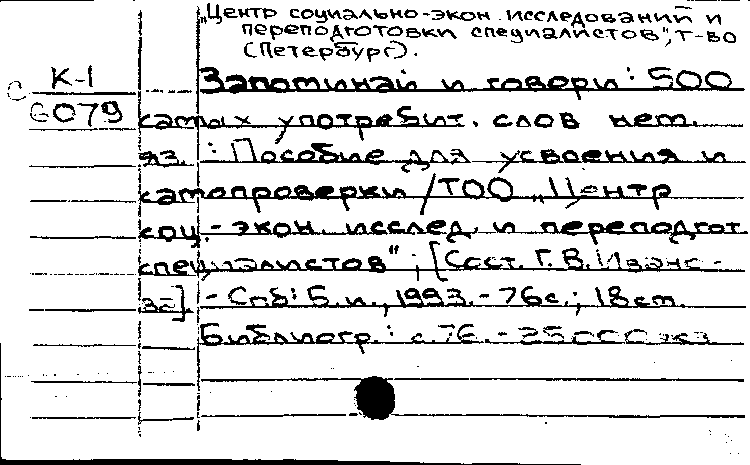 „Центр социально-экон. исследований и
переподготовки специалистов", т-во
(Петербург).
К-1 Запоминай и говори: 500
6079 самых употребит. слов нем.
яз. : Пособие для усвоения и
самопроверки /ТОО „Центр
соц.-экон. исслед. и переподгот
специалистов" ; [Сост. Г.В.Ивано-
ва]. - Спб: Б.и., 1993. - 76с.; 18см.
Библиогр.: с.76. - 25000 экз